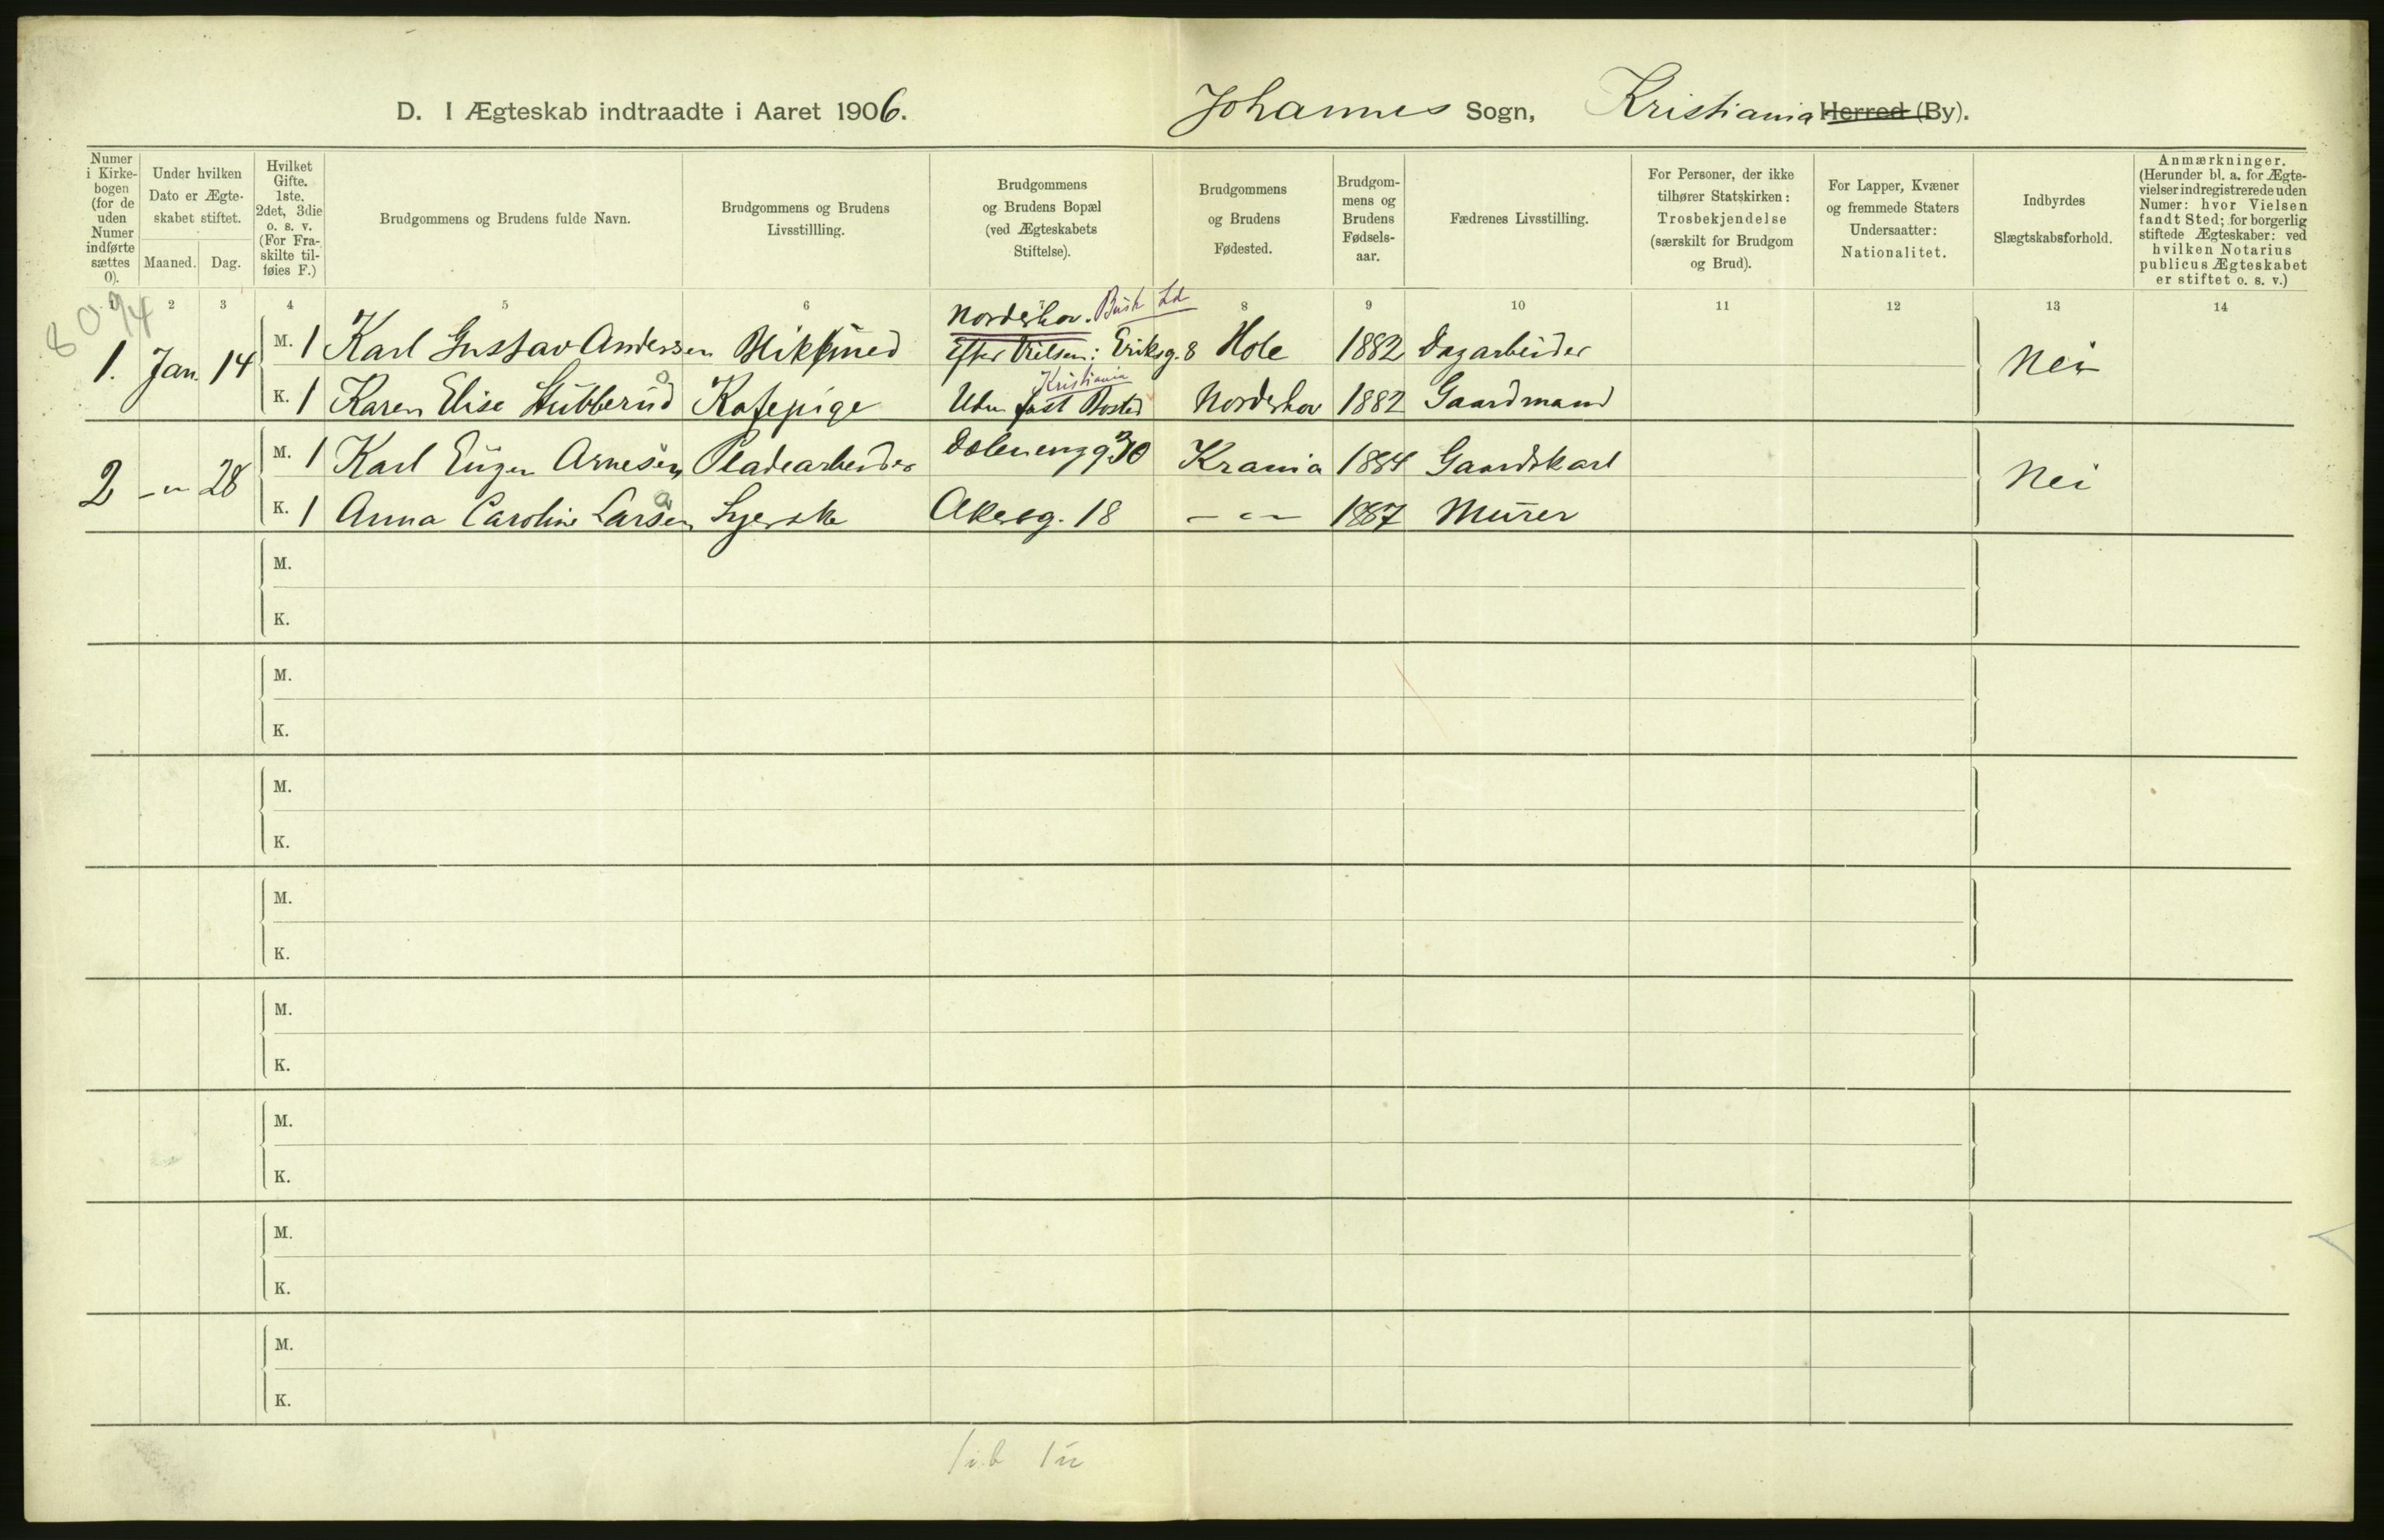 D. I Ægteskab indtraadte i Aaret 1906. Johannes Sogn, Kristiania Herred (By).
Numer i Kirkebogen (for de uden Numer indførte sættes 0).
Under hvilken Dato er Ægteskabet stiftet.
Maaned. Dag.
Hvilket Gifte. 1ste, 2det, 3die o. s. v. (For Fraskilte tilføies F.)
Brudgommens og Brudens fulde Navn.
Brudgommens og Brudens Livsstillling.
Brudgommens og Brudens Bopæl (ved Ægteskabets Stiftelse).
Brudgommens og Brudens Fødested.
Brudgommens og Brudens Fødselsaar.
Fædrenes Livsstilling.
For Personer, der ikke tilhører Statskirken: Trosbekjendelse (særskilt for Brudgom og Brud).
For Lapper, Kvæner og fremmede Staters Undersaatter: Nationalitet.
Indbyrdes Slægtskabsforhold.
Anmærkninger. (Herunder bl. a. for Ægtevielser indregistrerede uden Numer: hvor Vielsen fandt Sted; for borgerlig stiftede Ægteskaber: ved hvilken Notarius publicus Ægteskabet er stiftet o. s. v.)
1 2 3 4 5 6 8 9 10 11 12 13 14
Norderhov. Busk
1. Jan. 14 M. 1 Karl Gustav Andersen Bliksmed Efter Vielsen: Eriksg. 8 Hole 1882 Dagarbeider Nei
Kristiania
K. 1 Karen Elise Stubberud Kafepige Uden fast Bosted Norderhov 1882 Gaardmand
2 -"- 28 M. 1 Karl Eugen Arnesen Pladearbeider Dalenengg 30 Krania 1884 Gaardskarl Nei
K. 1 Anna Caroline Larsen Syerske Akersg. 18 -"- 1887 Murer
M.
K.
M.
K.
M.
K.
M.
K.
M.
K.
M.
K.
M.
K.
M.
K.